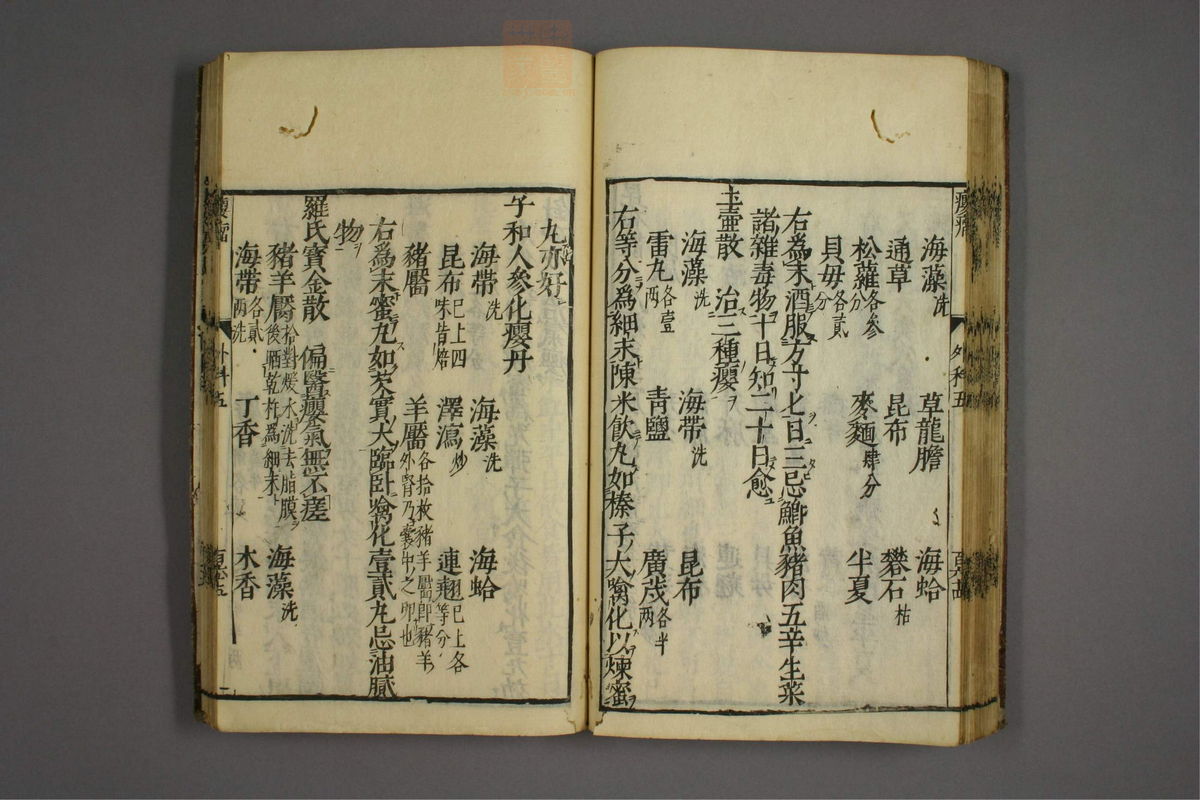 海藻洗 草龍膽 海蛤
通草 昆布 礬石枯
松蘿各參分 麥麵肆分 半夏
貝毋各貳分
右爲末酒服方寸匕日三忌鯽魚豬肉五辛生菜
諸雜毒物十日知二十日愈
玉壺散 治三種癭
海藻洗 海帶洗 昆布
雷丸各壹兩 青鹽 廣茂各半兩
右等分爲細末陳米飲丸如榛子大噙化以煉蜜
癭瘤 外科五
丸亦好
子和人參化癭丹
海帶洗 海藻洗 海蛤
昆布已上四味皆焙 澤瀉炒 連翹已上各等分
豬靨 羊靨各拾枚豬羊靨即豬羊外腎乃囊中之卵也
右爲末蜜丸如芡實大臨臥噙化壹貳丸忌油膩
物
羅氏寶金散 偏醫癭氣無不瘥
豬羊靨拾對煖水洗去脂膜後晒乾杵爲細末 海藻洗
海帶各貳兩洗 丁香 木香
癭瘤 外科五